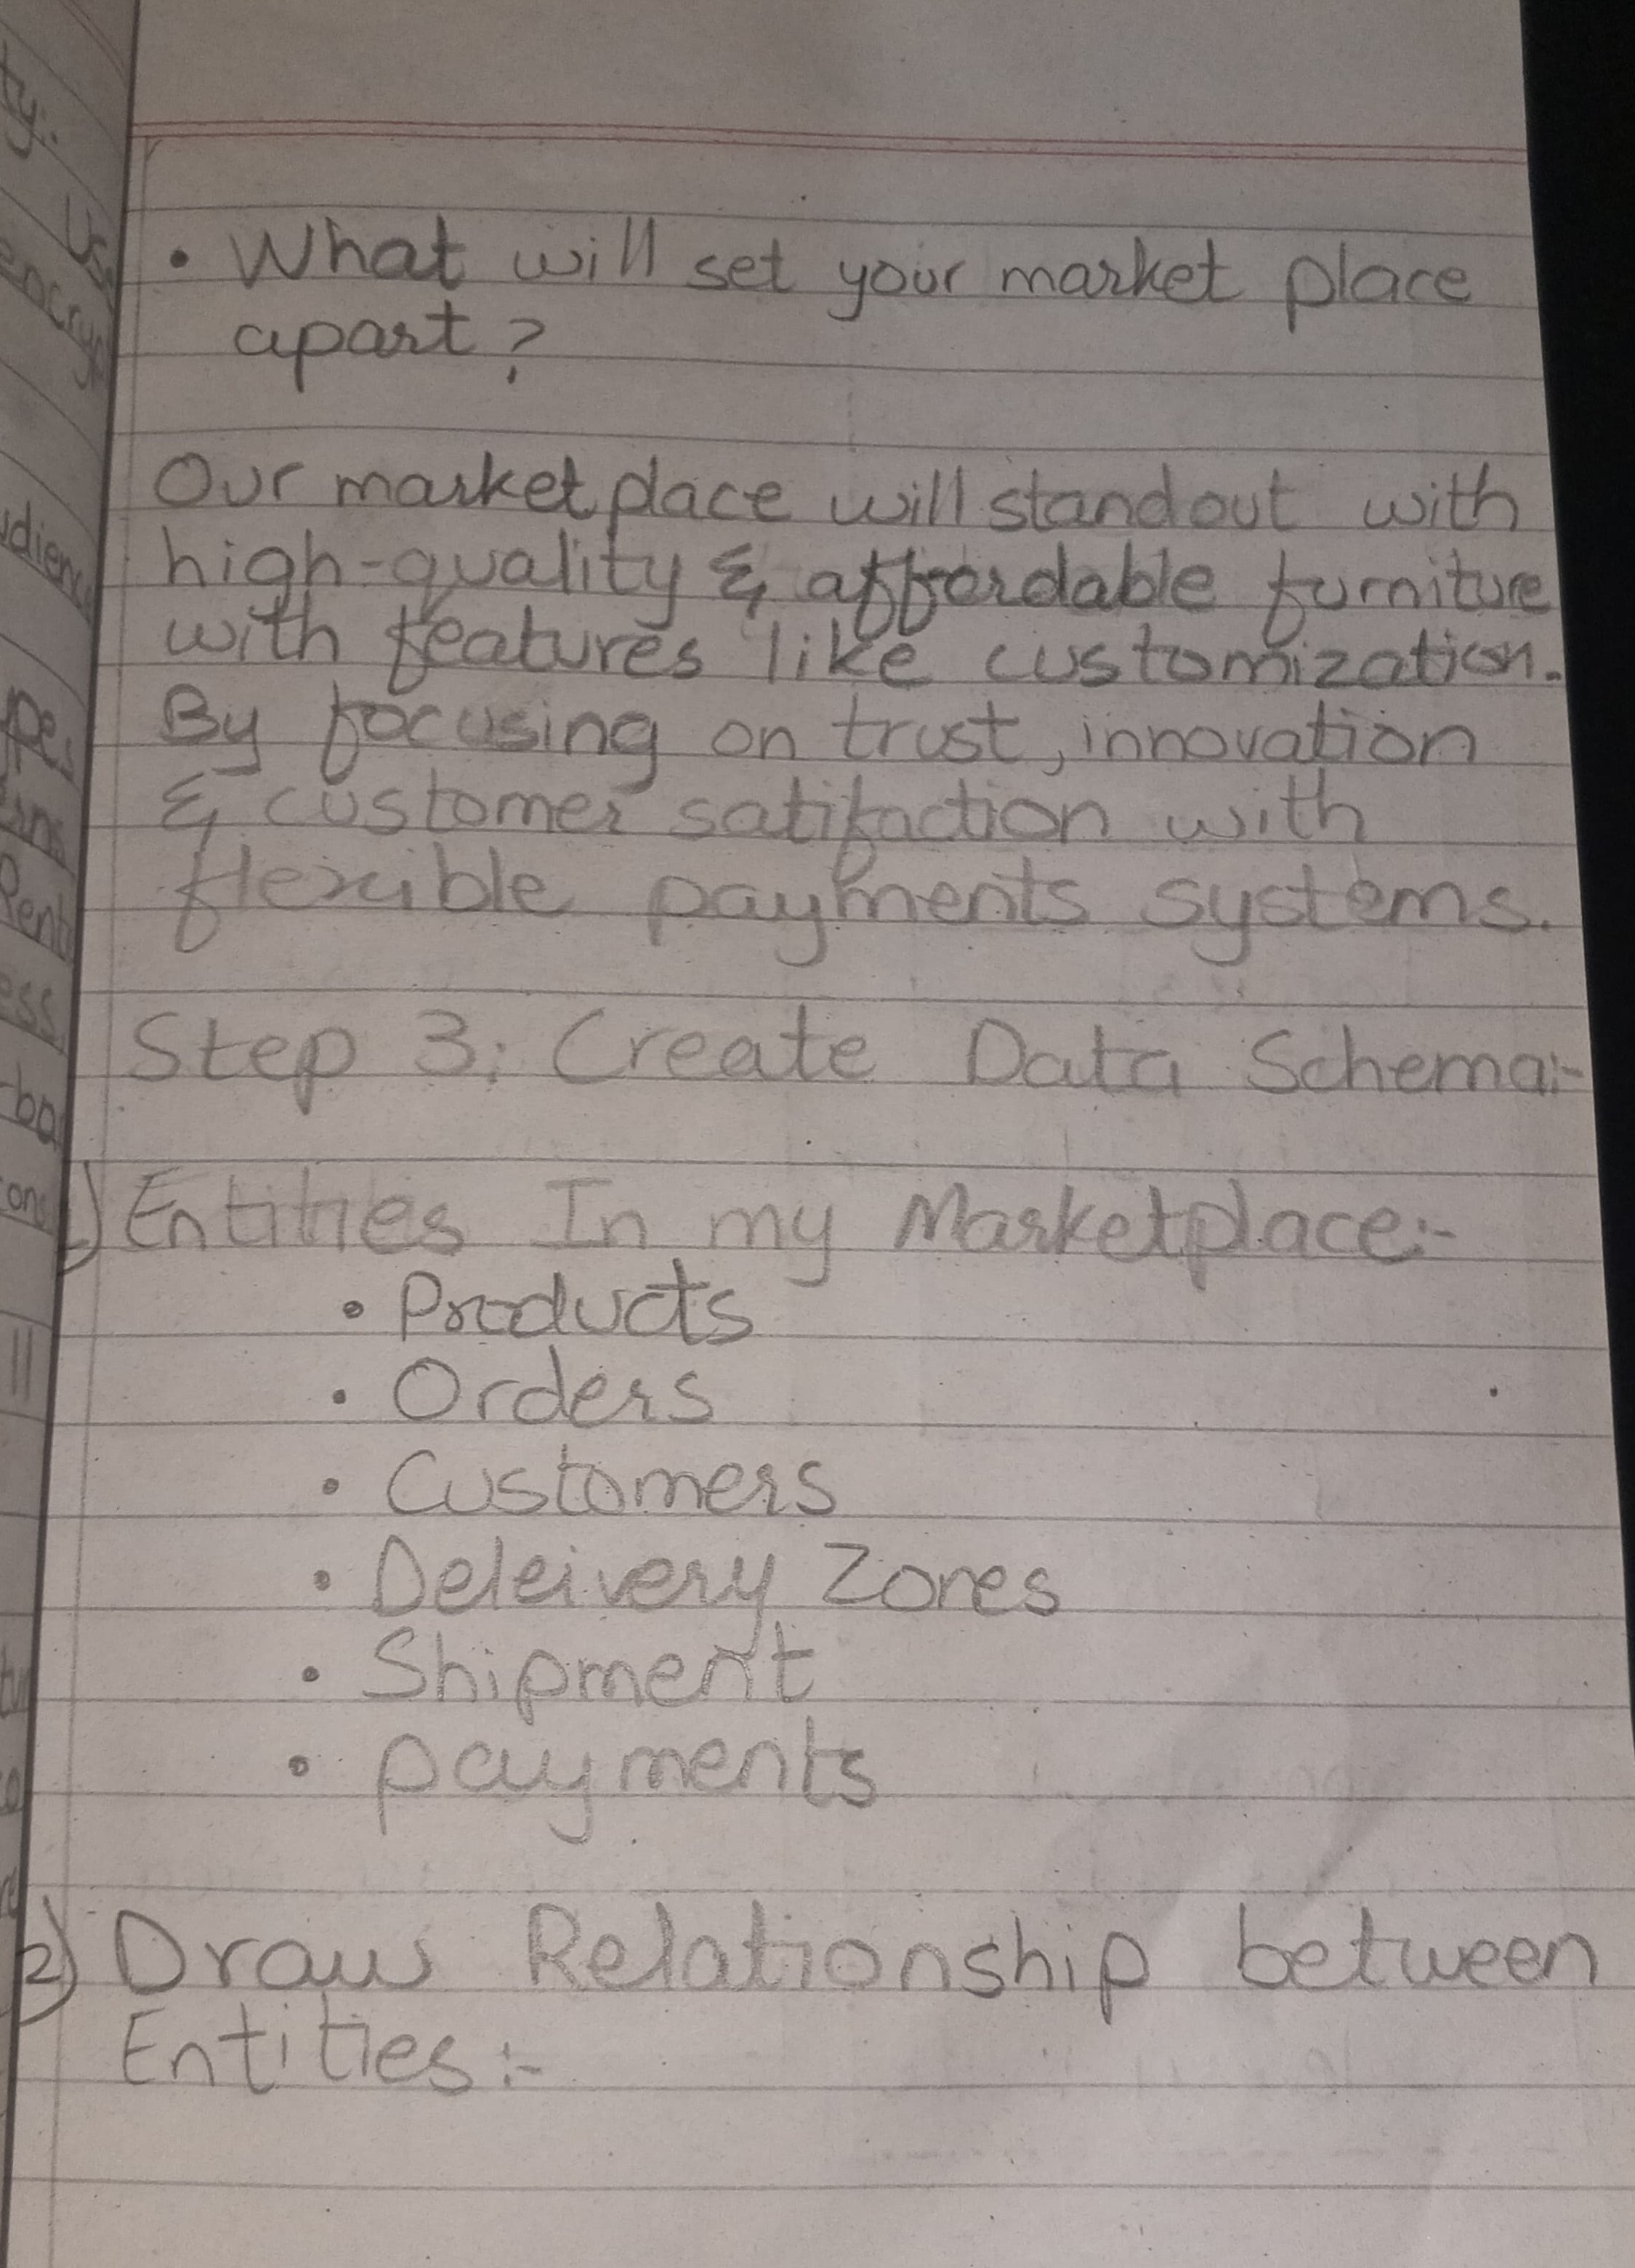 • What will set your market place
apart?
Our marketplace will standout with
high-quality & affordable furniture
with features like customization.
By focusing on trust, innovation
& customer satifaction with
flexible payments systems.
Step 3: Create Data Schema:-
1) Entities In my Marketplace:-
• Products
• Orders
• Customers
• Deleivery Zones
• Shipment
• payments
2) Draw Relationship between
Entities:-